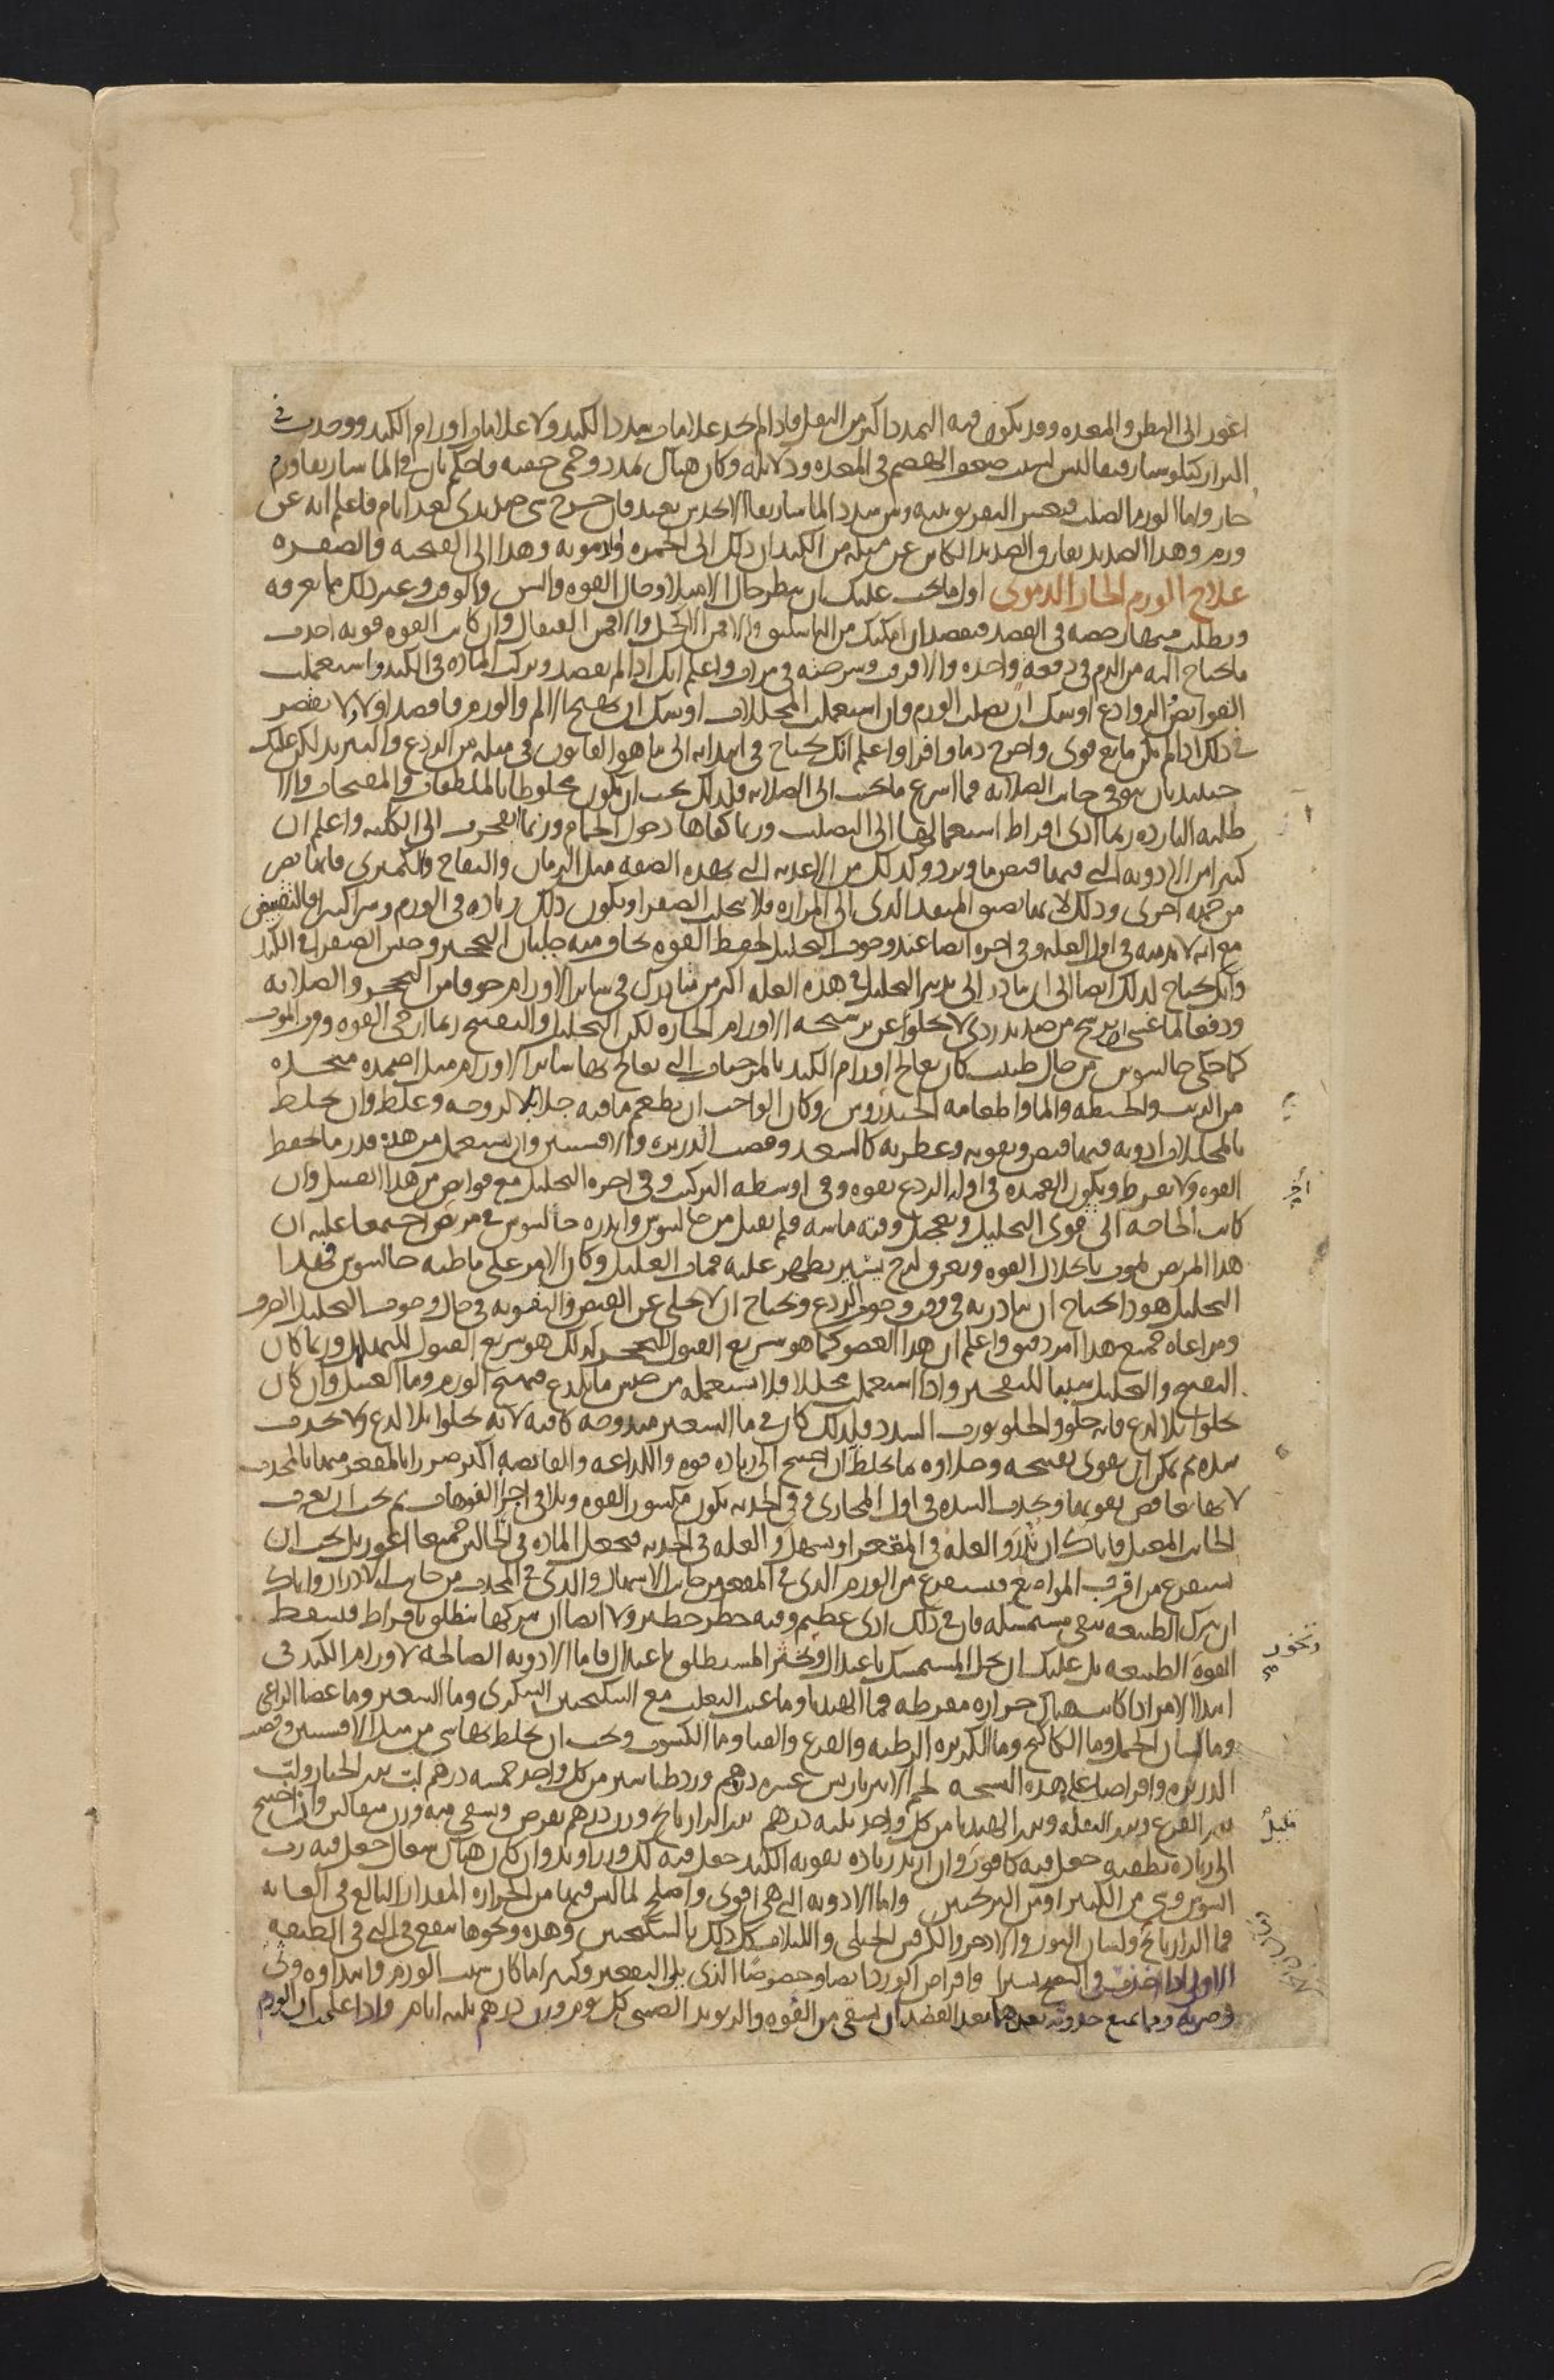 اغور الى البطن والمعده وقد يكون فيه التمدد اكثر من الثقل فاذا لم تجد علامات سدد الكبد ولا علامات اورام الكبد ووجدت في
البراز كيلوسا رقيقا ليس لسبب ضعف الهضم في المعده ودلايله وكان هناك تمدد وحمى خفيه فاحكم بان في الماساريقا ورم
حار واما الورم الصلب فيعسر التفريق بينه وبين سدد الماساريقا الا بحدس بعيد فان خرج شي صديدي بعد ايام فاعلم انه عن
ورم وهذا الصديد يفارق الصديد الكاين عن مثله من الكبد ان ذلك الى الحمره والدمويه وهذا الى القيحيه والصفره
علاج الورم الحار الدموي اول ما يجب عليك ان تنظر حال الامتلا وحال القوه والسن والوقت وغير ذلك مما تعرفه
وتطلب منها رخصه في الفصد فتفصد ان امكنك من الباسليق والا فمن الاكحل والا فمن القيفال وان كانت القوه قويه اخذت
ما تحتاج اليه من الدم في دفعه واحده والا فرقت وشرحته في مرات واعلم انك اذا لم تفصد وتركت الماده في الكبد واستعملت
القوابض الروادع اوشك ان يصلب الورم وان استعملت المحللات اوشك ان يهيج الالم والورم فافصد اولا ولا تقتصر
في ذلك اذا لم يكن مانع قوي واخرج دما وافرا واعلم انك تحتاج في ابتدايه الى ما هو القانون في مثله من الردع والتبريد لكن عليك
حينيذ بان تتوقى جانب الصلابه فما اسرع ما يجيب الى الصلابه ولذلك يجب ان يكون مخلوطا بالملطفات والمفتحات والا
طليه البارده ربما ادى افراط استعمالها الى التصلب وربما كفاها دخول الحمام وربما انفجرت الى الكليه واعلم ان
كثيرا من الادويه التي فيها قبض ما وبرد وكذلك من الاغذيه التي بهذه الصفه مثل الرمان والتفاح والكمثري فانها تضر
من جهه اخرى وذلك لانها تضيق المنفذ الذي الى المراره فلا يتحلب الصفرا ويكون ذلك زياده في الورم وشرا كثيرا فالتقبيض
مع انه لا بد منه في اول العله وفي اخره ايضا عند وجوب التحليل لحفظ القوه يخاف منه خلتان التحجير وحبس الصفرا في الكبد
وانك تحتاج لذلك ايضا الى ان تبادر الى تدبير التحليل في هذه العله اكثر من تبادرك في ساير الاورام خوفا من التحجر والصلابه
ودفعا لما عسى ان يرشح من صديد ردي لا تخلوا عن ترشحه الاورام الحاره لكن التحليل والتفتيح ربما ارخى القوه وقرب الموت
كما حكى جالينوس من حال طبيب كان يعالج اورام الكبد بالمرخيات التي يعالج بها ساير الاورام مثل اضمده متخذه
من الزيت والحنطه والما واطعامه الخندروس وكان الواجب ان يطعم ما فيه جلا بلا لزوجه وغلظ وان يخلط
بالمحللات ادويه فيها قبض وتقويه وعطريه كالسعد وقصب الذريره والافسنتين وان يستعمل من هذه قدر ما يحفظ
القوه ولا يفرط ويكون العمده في اوله الردع بقوه وفي اوسطه التركيب وفي اخره التحليل مع قوابض من هذا القبيل وان
كانت الحاجه الى قوي التحليل وتعجيل وقته ماسه فلم يقبل من جالينوس وانذره جالينوس في مريض اجتمعا عليه ان
هذا المريض يموت بانحلال القوه وبعرق لزج يسير يظهر عليه فمات العليل وكان الامر على ما ظنه جالينوس فهذا
التحليل هوذا يحتاج ان يبادر به في وقت وجوب الردع ويحتاج ان لا يخلى عن القبض والتقويه في حال وجوب التحليل الصرف
ومراعاه جميع هذا امر دقيق واعلم ان هذا العضو كما هو سريع القبول للتحجر كذلك هو سريع القبول للتهلهل وربما كان
التفتيح والتحليل سببا للتفجير واذا استعملت محللا فلا تستعمله من جنس ما يلذع فيهيج الورم وما العسل وان كان
يجلوا بلا لذع فانه حلو والحلو يورث السدد ولذلك كان في ما الشعير مندوحه كافيه لانه يجلوا بلا لذع ولا يحدث
سده ثم يمكن ان يقوي تفتيحه وجلاوه بما يخلط ان احتيج الى زياده قوه واللذاعه والقابضه اكثر ضررا بالمقعر منها بالمحدب
لانها تغافص بقوتها وتحدث السده في اول المجاري وفي الحدبه تكون مكسوره القوه وتلاقي اخر الفوهات ثم يجب ان تعرف
الجانب المعتل فاياك ان تدر والعله في المقعر او تسهل والعله في الحدبه فتجعل الماده في الحالين جميعا اغور بل يجب ان
تستفرغ من اقرب المواضع فتستفرغ من الورم الذي في المقعر من جانب الاسهال والذي في المحدب من جانب الادرار واياك
ان تترك الطبيعه تبقى مستمسكه فان في ذلك اذى عظيم وفيه خطر خطير ولا ايضا ان تتركها تنطلق بافراط فتسقط
القوه الطبيعه بل عليك ان تحل المستمسك باعتدال وتحبس المستطلق باعتدال فاما الادويه الصالحه لاورام الكبد في
ابتدا الامر اذا كانت هناك حراره مفرطه فما الهندبا وما عنب الثعلب مع السكنجبين السكري وما الشعير وما عصا الراعي
وما لسان الحمل وما الكاكنج وما الكزبره الرطبه والقرع والقثا وما الكشوث ويجب ان يخلط بها شي من مثل الافسنتين وقصب
الذريره واقراصا على هذه النسخه لحم الانبرباريس عشره دراهم ورد طباشير من كل واحد خمسه درهم لب بزر الخيار ولب
بزر القرع وبزر البقله وبزر الهندبا من كل واحد ثلثه درهم بزر الرازيانج وزن درهم يقرص ويسقى منه وزن مثقالين وان احتيج
الى زياده تطفيه جعل فيه كافور وان اريد زياده تقويه الكبد جعل فيه لك وريوند وان كان هناك سعال جعل فيه رب
السوس وشي من الكثيرا ومن الترنجبين واما الادويه التي هي اقوى واصلح لما ليس فيها من الحراره المقدار البالغ في الغايه
فما الرازيانج ولسان الثور والاذخر والكرفس الجبلي واللبلاب كل ذلك بالسكنجبين وهذه ونحوها تنفع في التي في الطبقه
الاولى اذا اخذت في النضج يسيرا واقراص الورد ايضا وخصوصا الذي يلي التقعير وكثيرا ما كان سبب الورم وابتداوه وثي
وضربه ومما يمنع حدوثه بعدهما بعد الفصد ان يسقى من الفوه والريوند الصيني كل يوم وزن درهم ثلثه ايام واذا علمت ان الورم